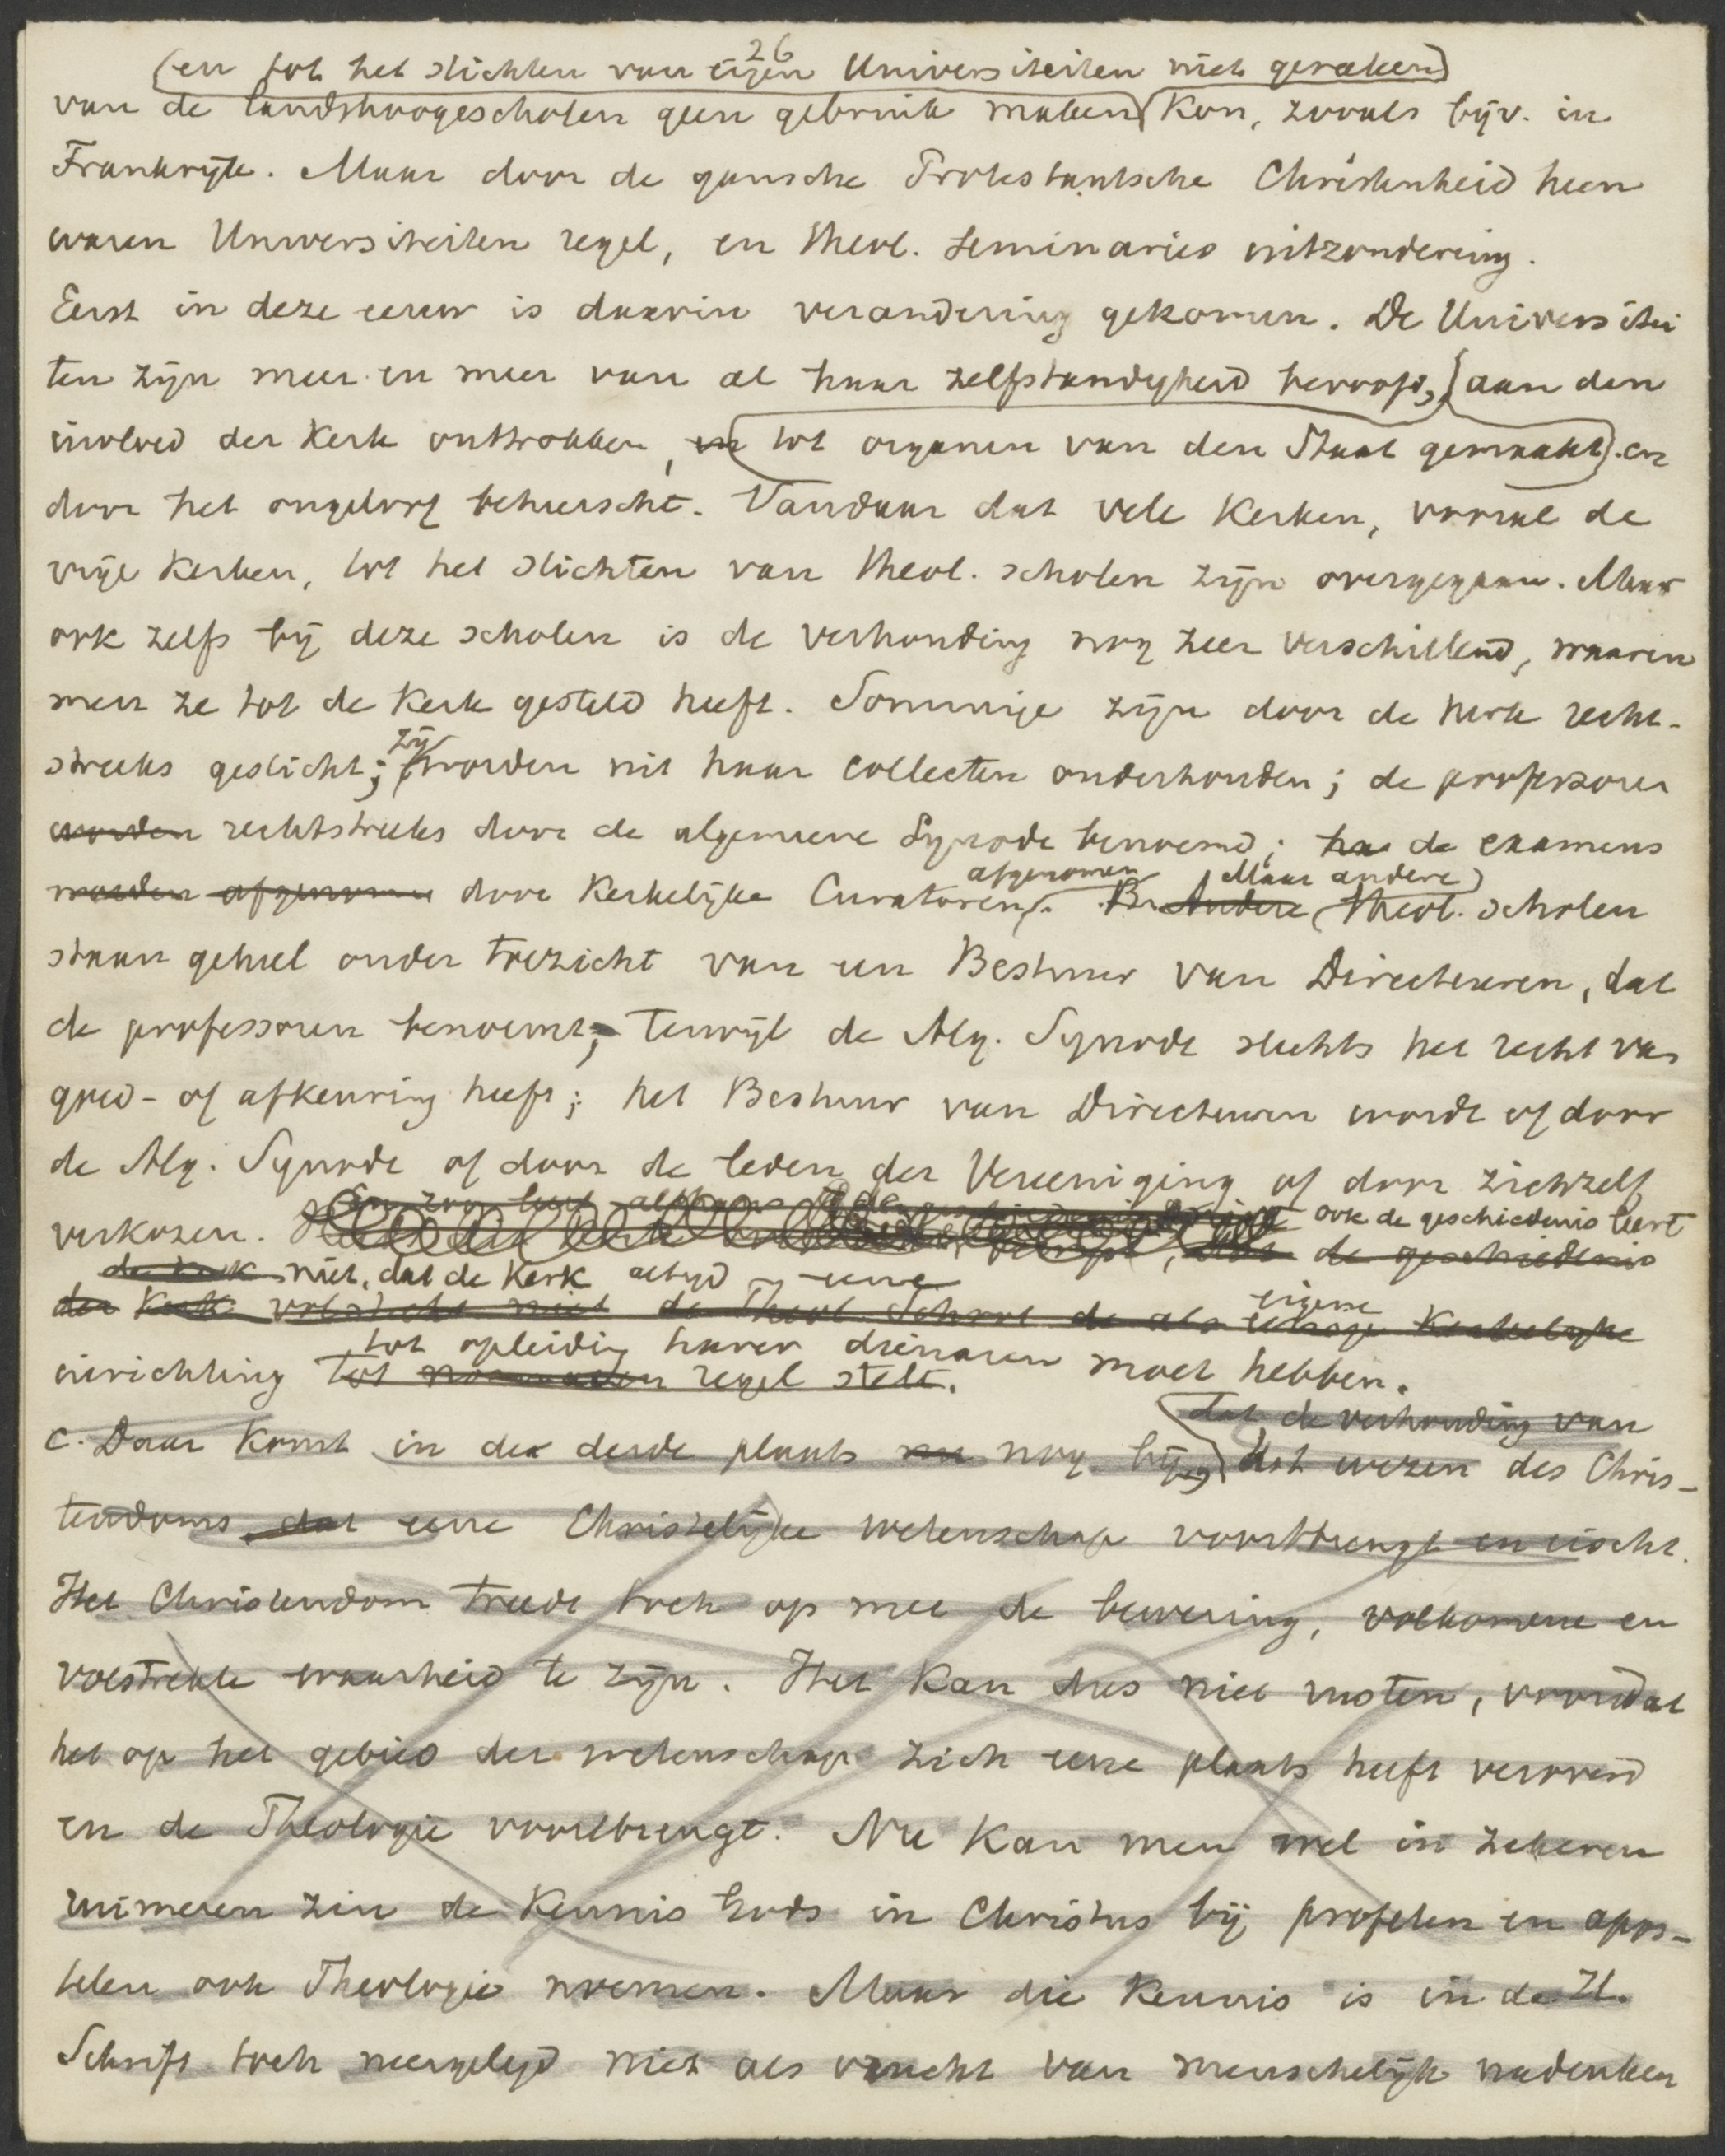 26
(en tot het stichten van eigen Universiteiten niet geraken)
van de landshoogescholen geen gebruik maken kon, zooals bijv. in
Frankrijk. Maar door de gansche Protestantsche Christenheid heen
waren Universiteiten regel, en theol. seminaries uitzondering.
Eerst in deze eeuw is daarin verandering gekomen. De Universitei
ten zijn meer en meer van al haar zelfstandigheid beroofd, aan den
invloed der Kerk onttrokken, en tot organen van den Staat gemaakt). en
door het ongeloof beheerscht. Vandaar dat vele Kerken, vooral de
vrije Kerken, tot het stichten van theol. scholen zijn overgegaan. Maar
ook zelfs bij deze scholen is de verhouding nog zeer verschillend, waarin
men ze tot de Kerk gesteld heeft. Sommige zijn door de Kerk recht-
zij
streeks gesticht; worden uit haar collecten onderhouden; de professoren
worden rechtstreeks door de algemeene Synode benoemd; de examens
afgenomen Maar andere)
worden afgenomen door Kerkelijke Curatoren. Andere theol. scholen
staan geheel onder toezicht van een Bestuur van Directeuren, dat
de professoren benoemt; terwijl de Alg. Synode slechts het recht van
goed- of afkeuring heeft; het Bestuur van Directeuren wordt of door
de Alg. Synode of door de leden der Vereeniging of door zichzelf
ook de geschiedenis leert
verkozen. de geschiedenis
de Kerk niet, dat de Kerk altijd eene
der Kerk volstrekt niet de Theol. School de als eenige Kerkelijke
eigene
tot opleiding harer dienaren moet hebben.
inrichting tot regel stelt.
dat de verhouding van
c. Daar komt in de derde plaats nog bij, het wezen des Chris-
tendoms dat eene Christelijke wetenschap voortbrengt en eischt.
Het Christendom treedt toch op met de bewering, volkomene en
volstrekte waarheid te zijn. Het kan dus niet rusten, voordat
het op het gebied der wetenschap zich eene plaats heeft veroverd
en de Theologie voortbrengt. Nu kan men wel in zekeren
ruimeren zin de kennis Gods in Christus bij profeten en apos-
telen ook Theologie noemen. Maar die kennis is in de H.
Schrift toch neergelegd niet als vrucht van menschelijk nadenken